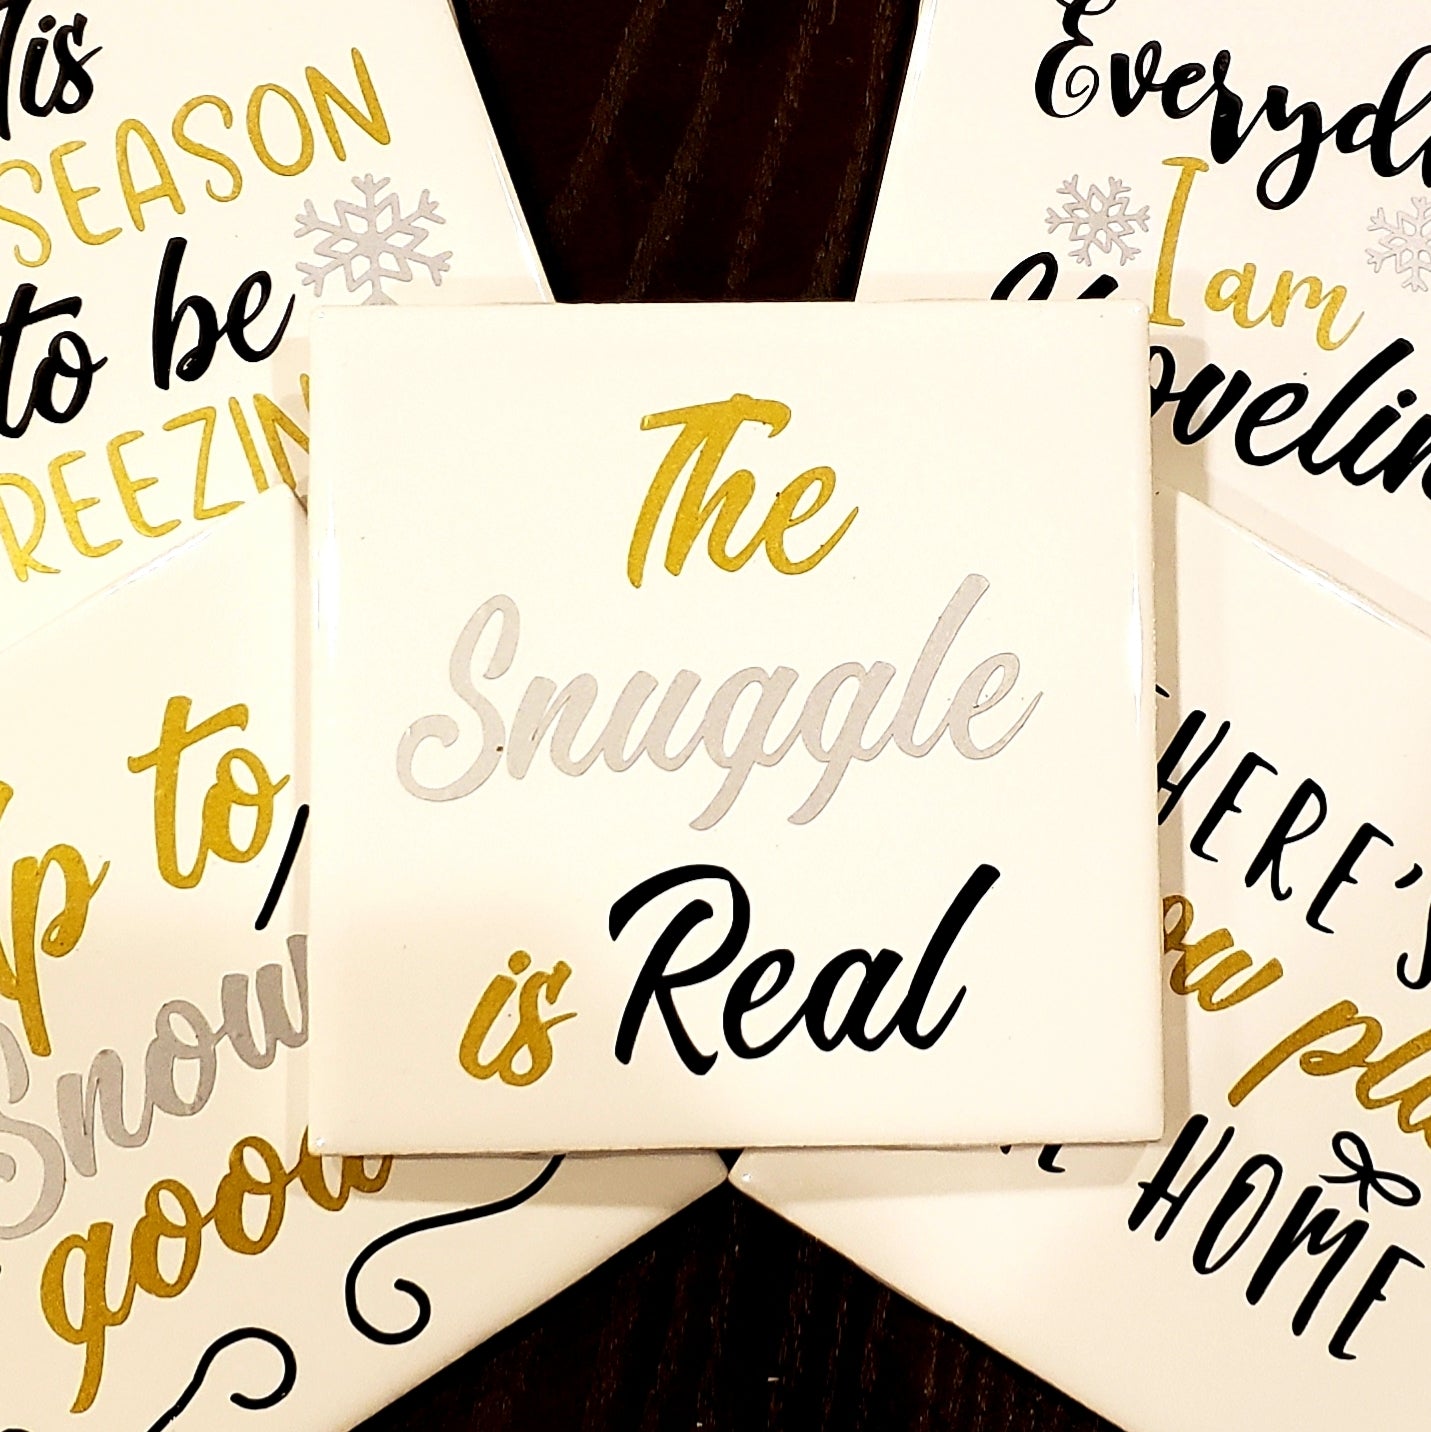 is
SEASON
to be
REEZIN
Everyd
I am
ovelin
The
Snuggle
is Real
p to
Snow
good
HERE'S
ow pla
HOME